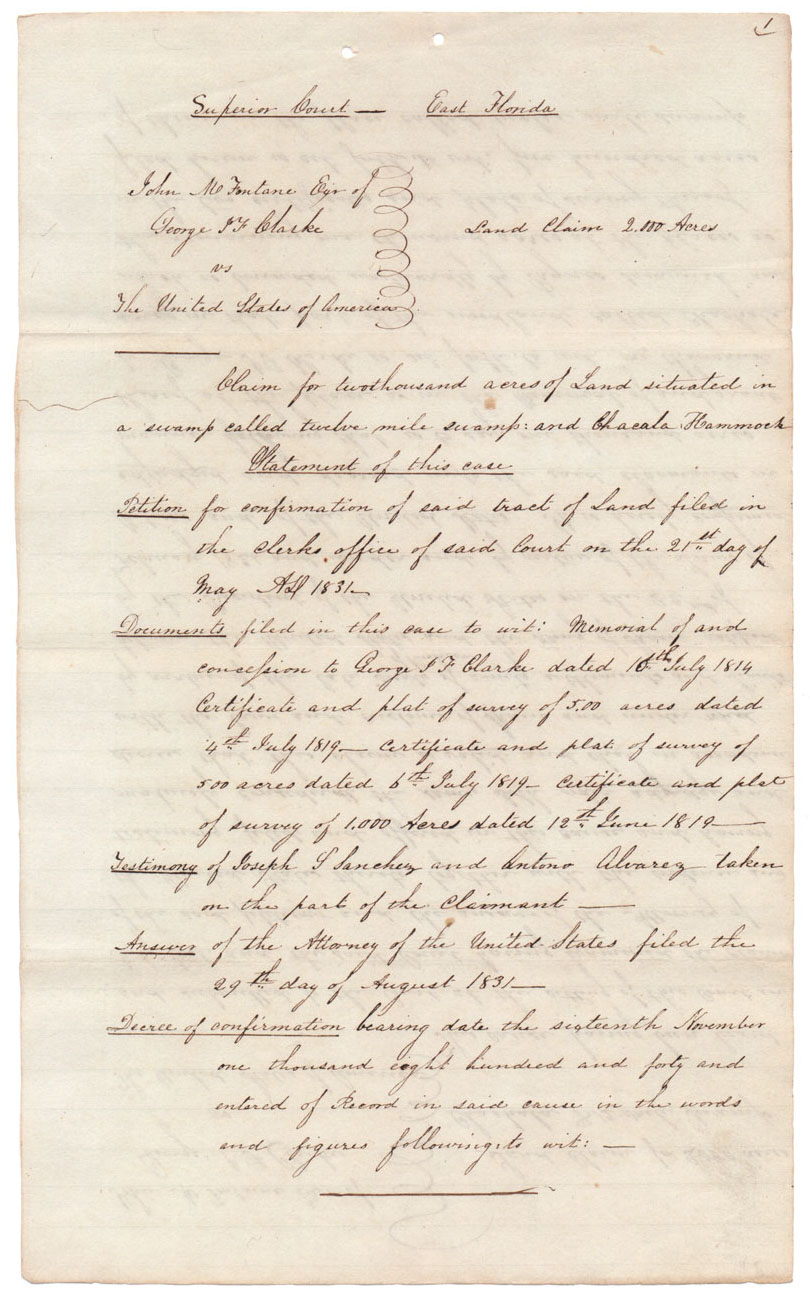 1
Superior Court — East Florida
John M Fontane Exr of
George J F Clarke
Land Claim 2.000 Acres
vs
The United States of America
Claim for two thousand acres of Land situated in
a swamp called twelve mile swamp: and Chacala Hammock
Statement of this case
Petition for confirmation of said tract of Land filed in
the clerks office of said Court on the 21st day of
May AD 1831—
Documents filed in this case to wit: Memorial of and
concession to George J F Clarke dated July 1814
Certificate and plat of survey of 5.00 acres dated
4th July 1819— Certificate and plat of survey of
500 acres dated 6th July 1819— Certificate and plat
of survey of 1.000 Acres dated 12th June 1819—
Testimony of Joseph S Sanchez and Antono Alvarez taken
on the part of the Claimant —
Answer of the Attorney of the United States filed the
29th day of August 1831—
Decree of confirmation bearing date the sixteenth November
one thousand eight hundred and forty and
entered of Record in said cause in the words
and figures following to wit: —